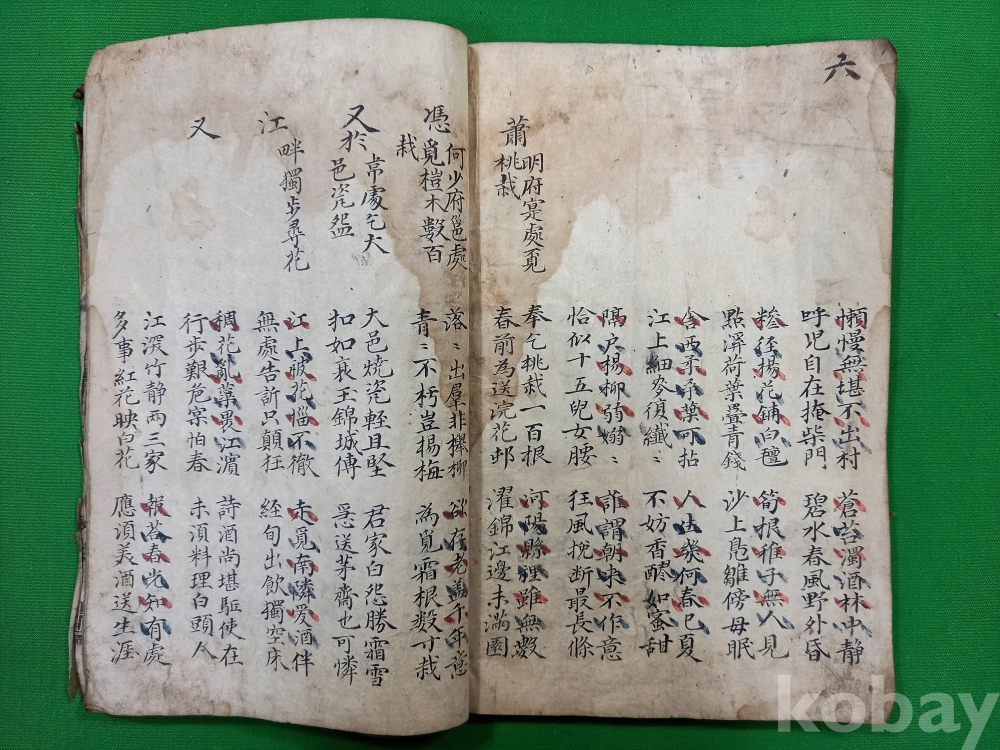 六
懶慢無堪不出村
呼児自在掩柴門
蒼苔濁酒林中静
碧水春風野外昏
糝徑楊花鋪白氊
點溪荷葉疊青錢
筍根稚子無人見
沙上鳧雛傍母眠
舍西柔桒葉可拈
江上細麥復纖〻
人生幾何春已夏
不妨香醪如蜜甜
隔戶楊柳弱嫋〻
恰似十五児女腰
誰謂朝来不作意
狂風挽断最長條
蕭明府寔處覓
桃栽
奉乞桃栽一百根
春前為送浣花邨
河陽縣裡雖無數
濯錦江邊未滿園
憑何少府邕處
覓榿木數百
栽
落〻出羣非櫸柳
青〻不朽豈楊梅
欲存老盖千年意
為覓霜根数寸栽
又於韋處乞大
邑瓷盌
大邑燒瓷輕且堅
扣如哀玉錦城傳
君家白盌勝霜雪
急送茅齋也可憐
江畔獨步尋花
江上被花惱不徹
無處告訴只顛狂
走覓南隣愛酒伴
経旬出飲獨空床
又
稠花亂蘂畏江濱
行步艱危寀怕春
詩酒尚堪駈使在
未須料理白頭人
江深竹静两三家
多事紅花映白花
報荅春光知有處
應須美酒送生涯
kobay